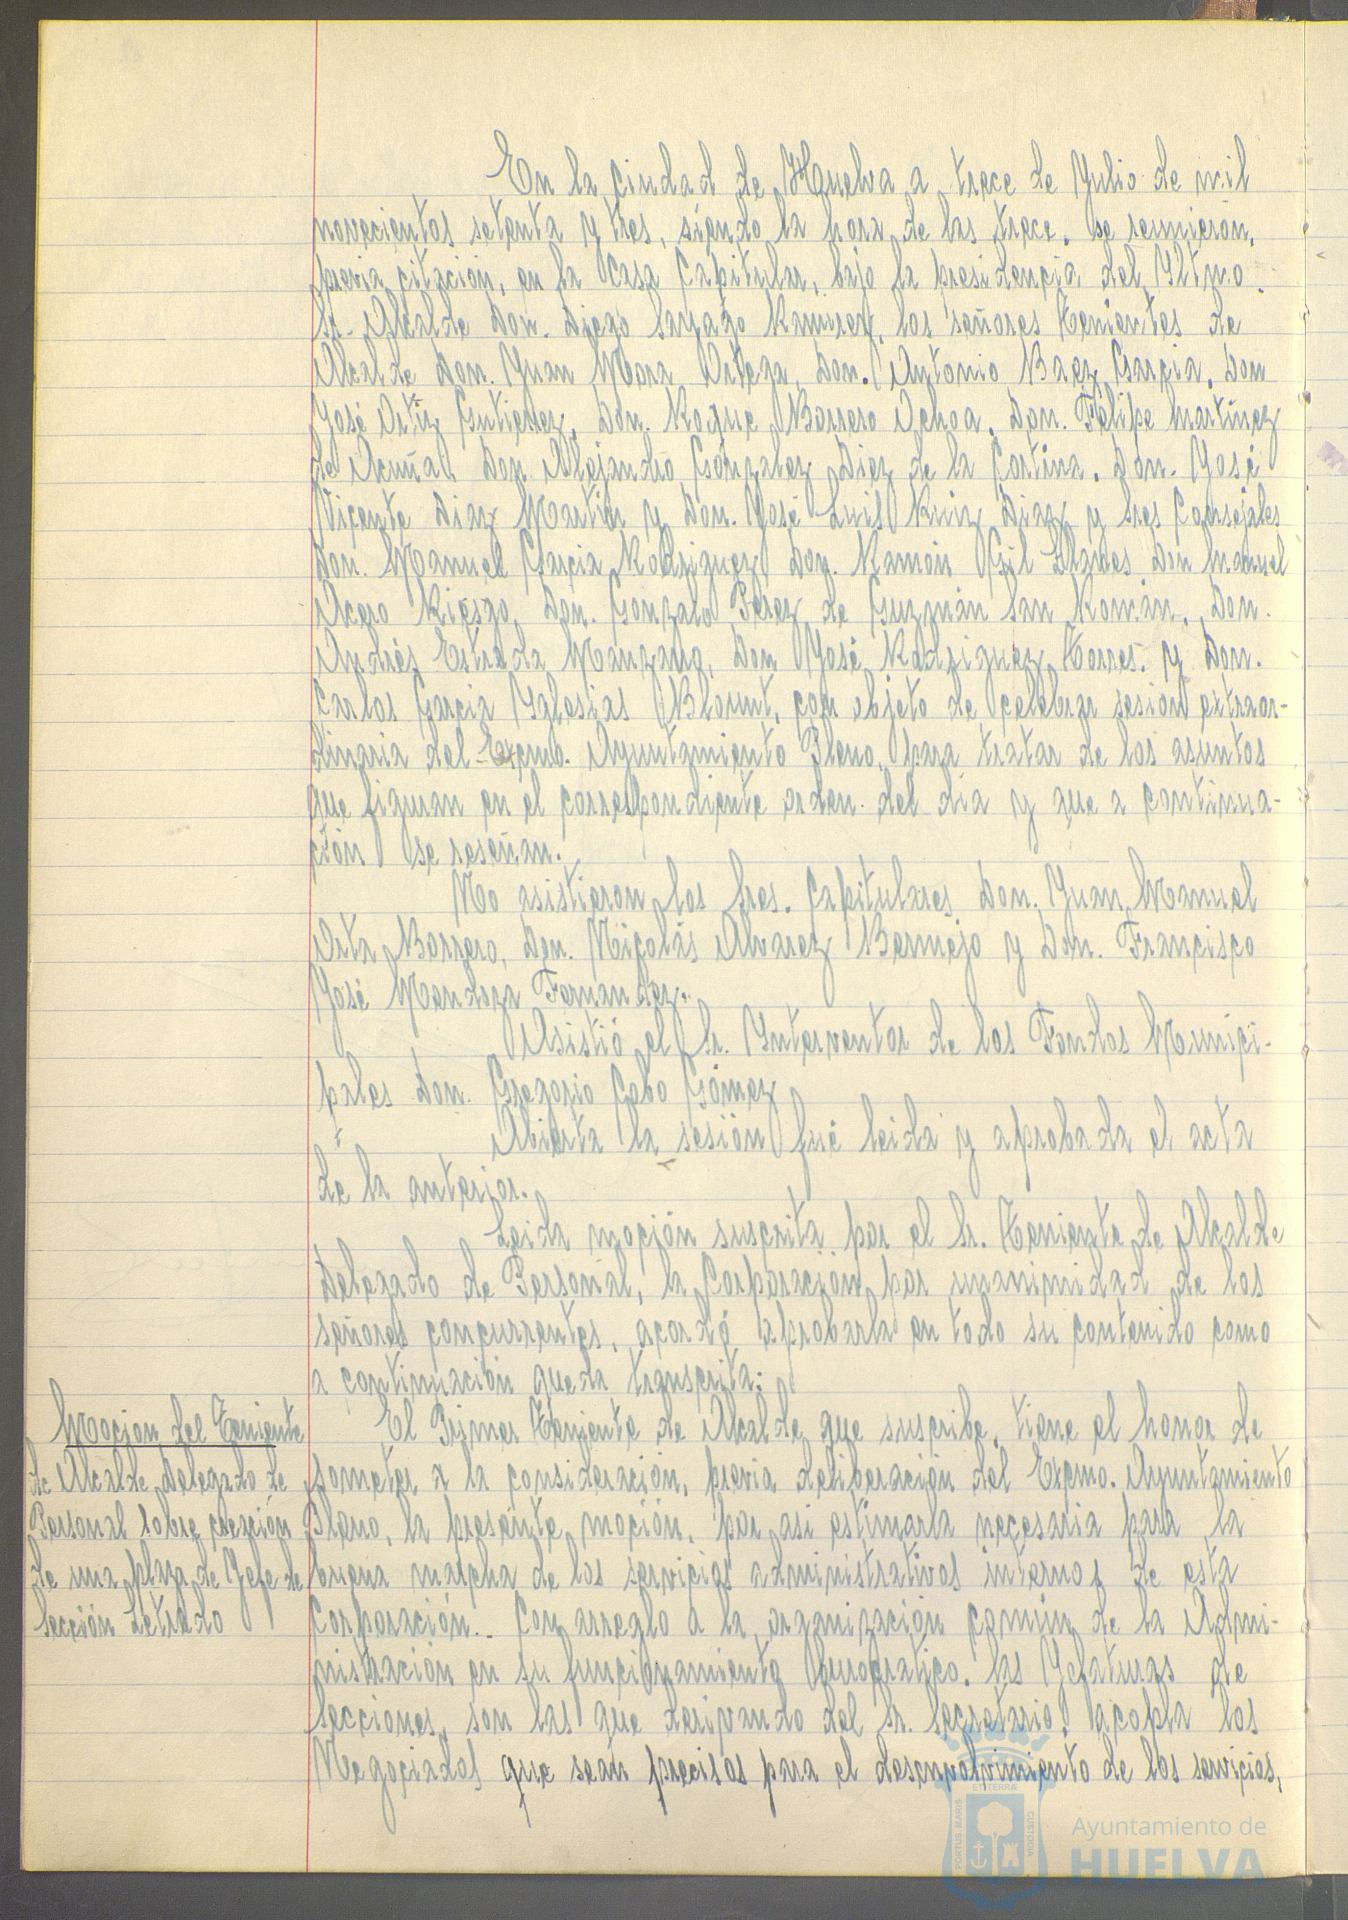 En la Ciudad de Huelva a trece de Julio de mil
novecientos setenta y tres, siendo la hora de las trece, se reunieron,
previa citación, en la Casa Capitular, bajo la presidencia del Iltmo.
Sr. Alcalde Don. Diego Sayago Ramirez, los señores Tenientes de
Alcalde Don. Juan Mora Ortega, Don. Antonio Baez Garcia, Don
José Ortíz Gutierrez, Don. Roque Borrero Ochoa, Don. Felipe Martínez
de Acuña, Don. Alejandro Gónzalez Diez de la Cortina, Don. José
Vicente Diaz Martín y Don. José Luis Ruiz Diaz y Sres Consejales
Don. Manuel Garcia Rodriguez Don. Ramón Gil Don Manuel
Acero Riesgo, Don. Gonzalo Pérez de Guzmán San Román, Don.
Andrés Estrada Manzano, Don José Rodriguez Torres. y Don.
Carlos Garcia Yglesias Blount, con objeto de celebrar sesión extraor-
dinaria del Excmo. Ayuntamiento Pleno, para tratar de los asuntos
que figuran en el correspondiente orden del dia y que a continua-
ción se reseñan.
No asistieron los Sres. Capitulares Don. Juan Manuel
Orta Borrero, Don. Nicolás Alvarez Bermejo y Don. Francisco
José Mendoza Fernandez.
Asistió el Sr. Interventor de los Fondos Munici-
pales Don. Gregorio Cabo Gómez
Abierta la sesión fué leida y aprobada el acta
de la anterior.
Leida moción suscrita por el Sr. Teniente de Alcalde
Delegado de Personal, la Corporación por unanimidad de los
señores concurrentes, acordó aprobarla en todo su contenido como
a continuación queda transcrita:
Mocion del Teniente
de Alcalde Delegado de
Personal sobre creación
de una plaza de Jefe de
Sección Letrado
El Primer Teniente de Alcalde que suscribe, tiene el honor de
someter a la consideración, previa deliberación del Excmo. Ayuntamiento
Pleno, la presente moción, por asi estimarla necesaria para la
buena marcha de los servicios administrativos internos de esta
Corporación.- Con arreglo a la organización común de la Admi-
nistración en su funcionamiento burocratico, las Jefaturas de
Secciones, son las que derivando del Sr. Secretario, acopla los
Negociados que sean precisos para el desenvolvimiento de los servicios,
PORTUS MARIS
ET TERRA
CUSTODIA
Ayuntamiento de
HUELVA